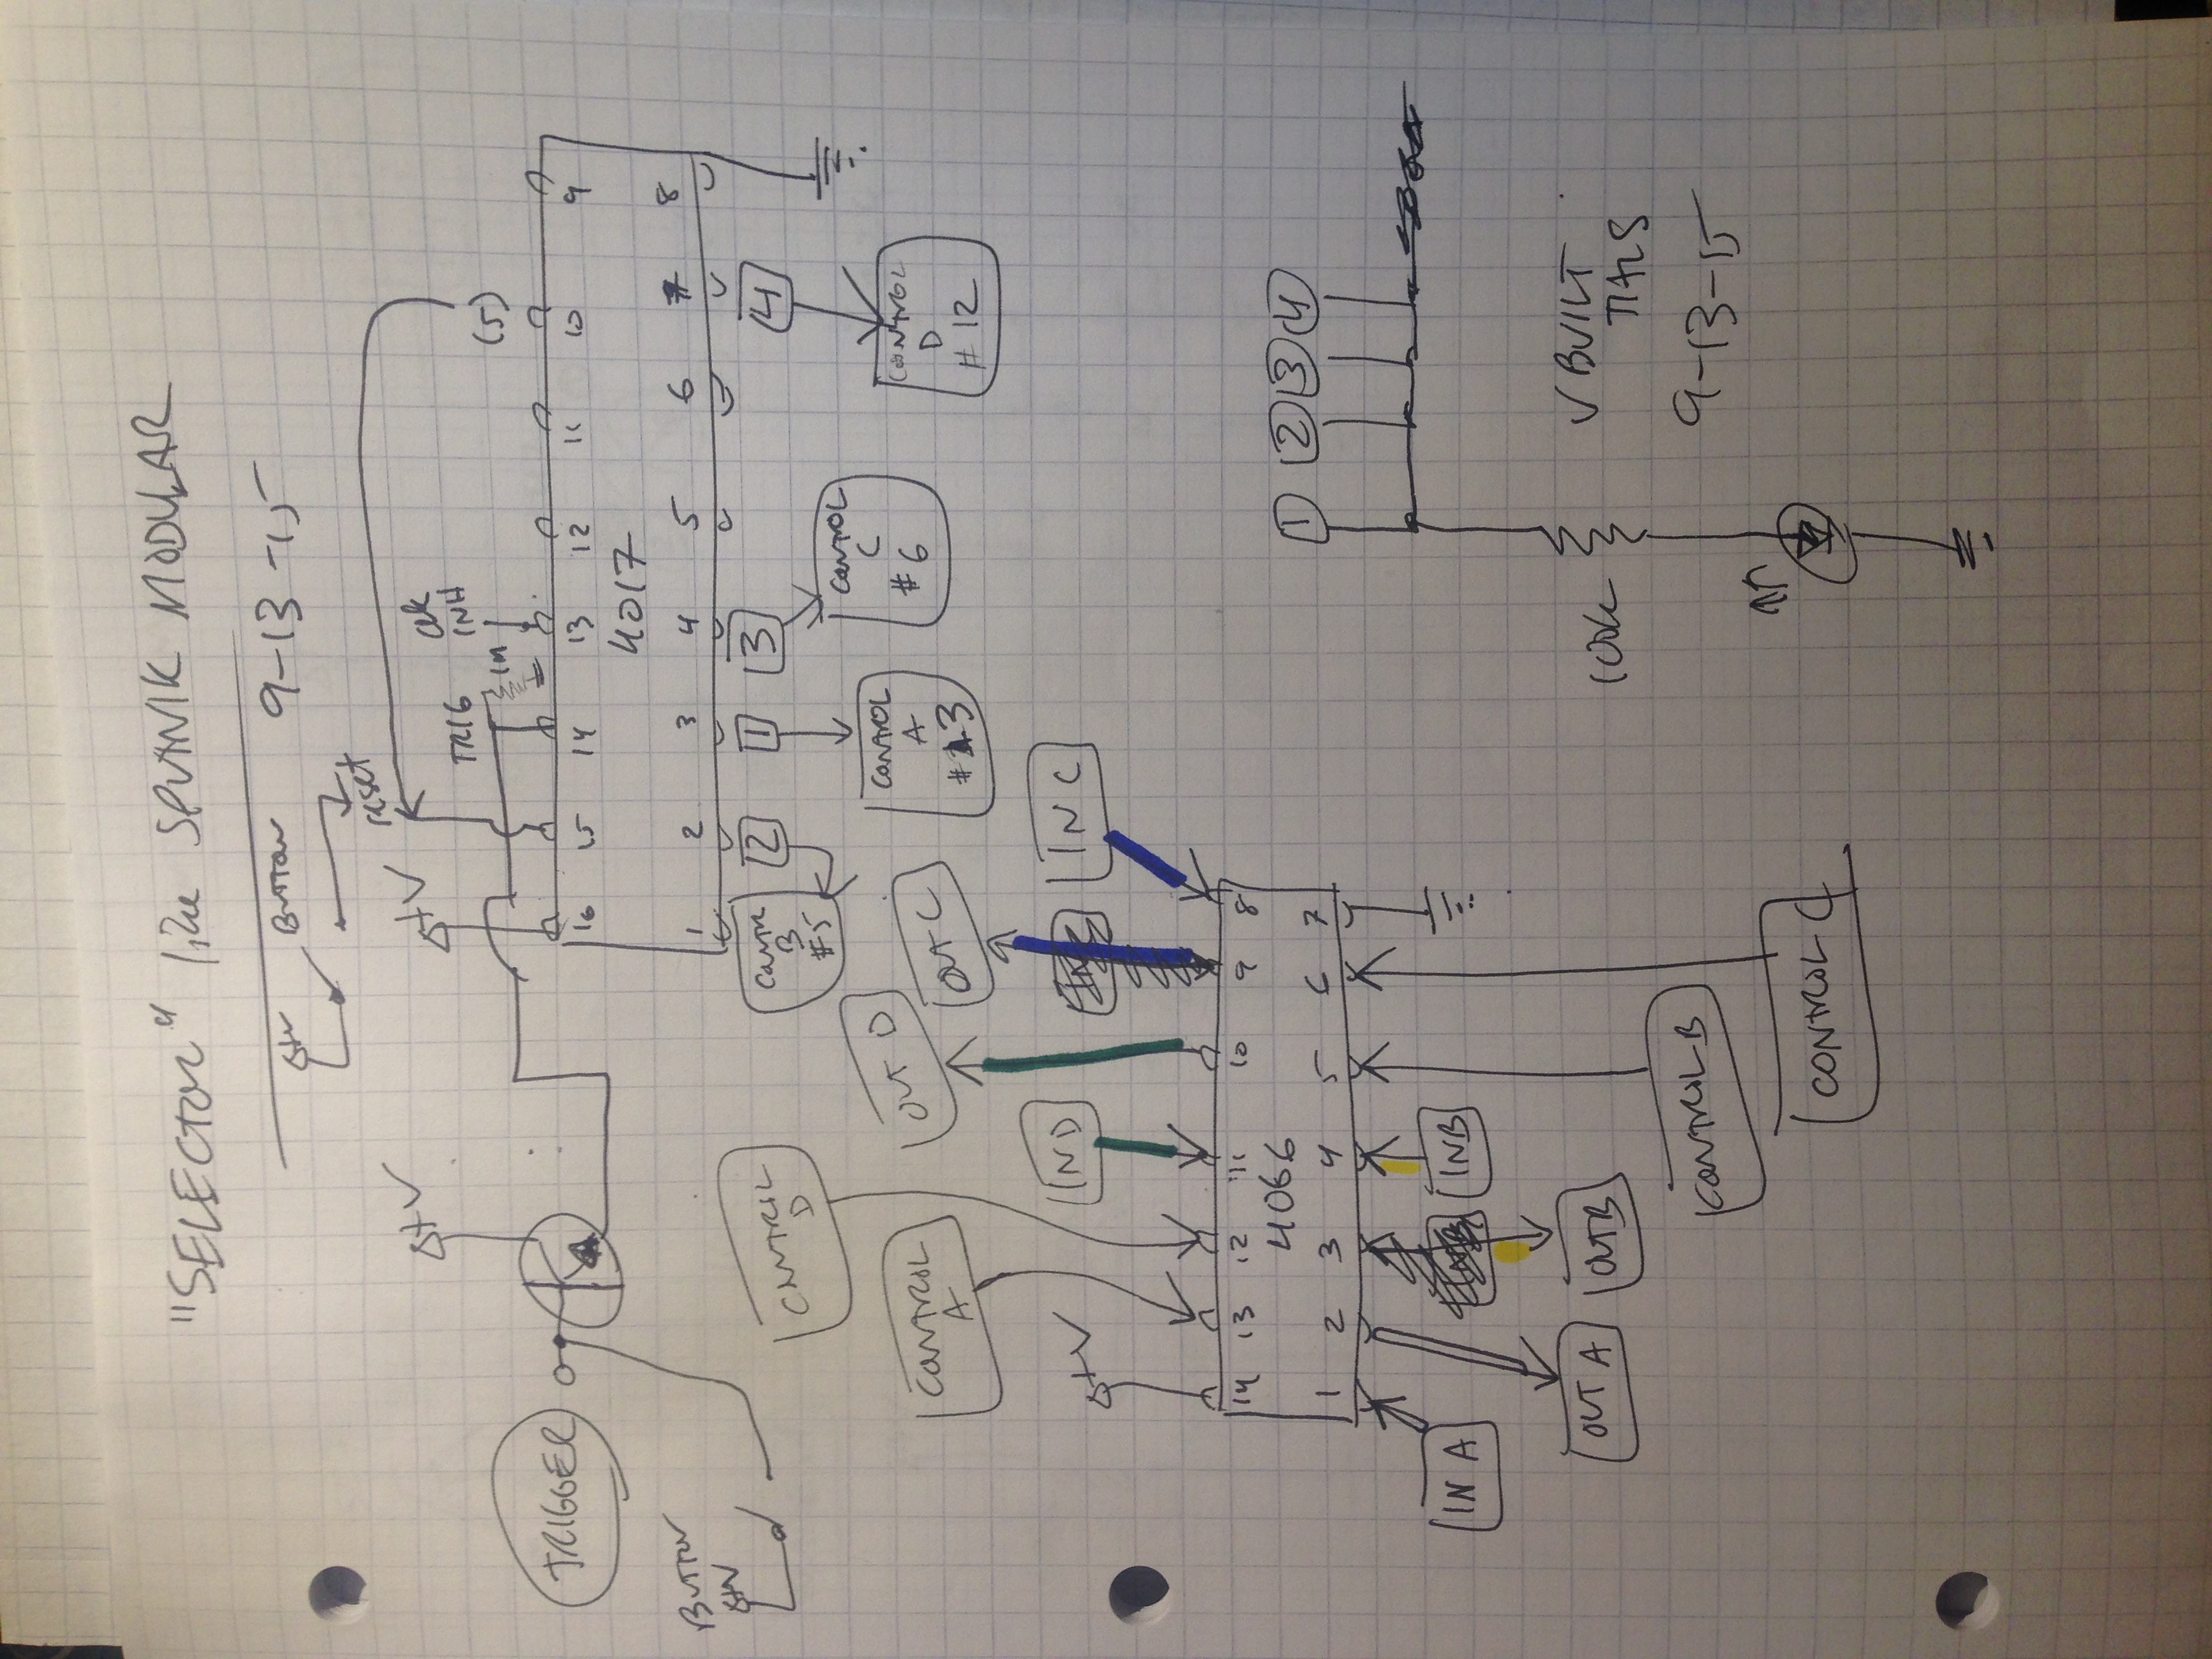 "SELECTOR" like SPUTNIK MODULAR
9-13-15
+V BUTTON
reset
+V
+V
TRIG
CLK
INH
1M
(5)
TRIGGER
16 15 14 13 12 11 10 9
4017
1 2 3 4 5 6 7 8
BUTTON
+V
CONTROL
D
CONTR
B
#5
2
1
3
4
CONTROL
A
#13
CONTROL
C
#6
CONTROL
D
#12
CONTROL
A
OUT D
OUT C
+V
IN D
IN C
14 13 12 11 10 9 8
4066
1 2 3 4 5 6 7
IN A
IN B
OUT A
OUT B
CONTROL B
CONTROL C
1 2 3 4
100K
√ BUILT
THIS
9-13-15